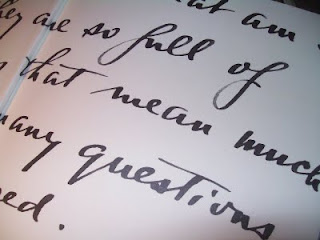 at am
hey are so full of
s that mean much
many questions
ed.